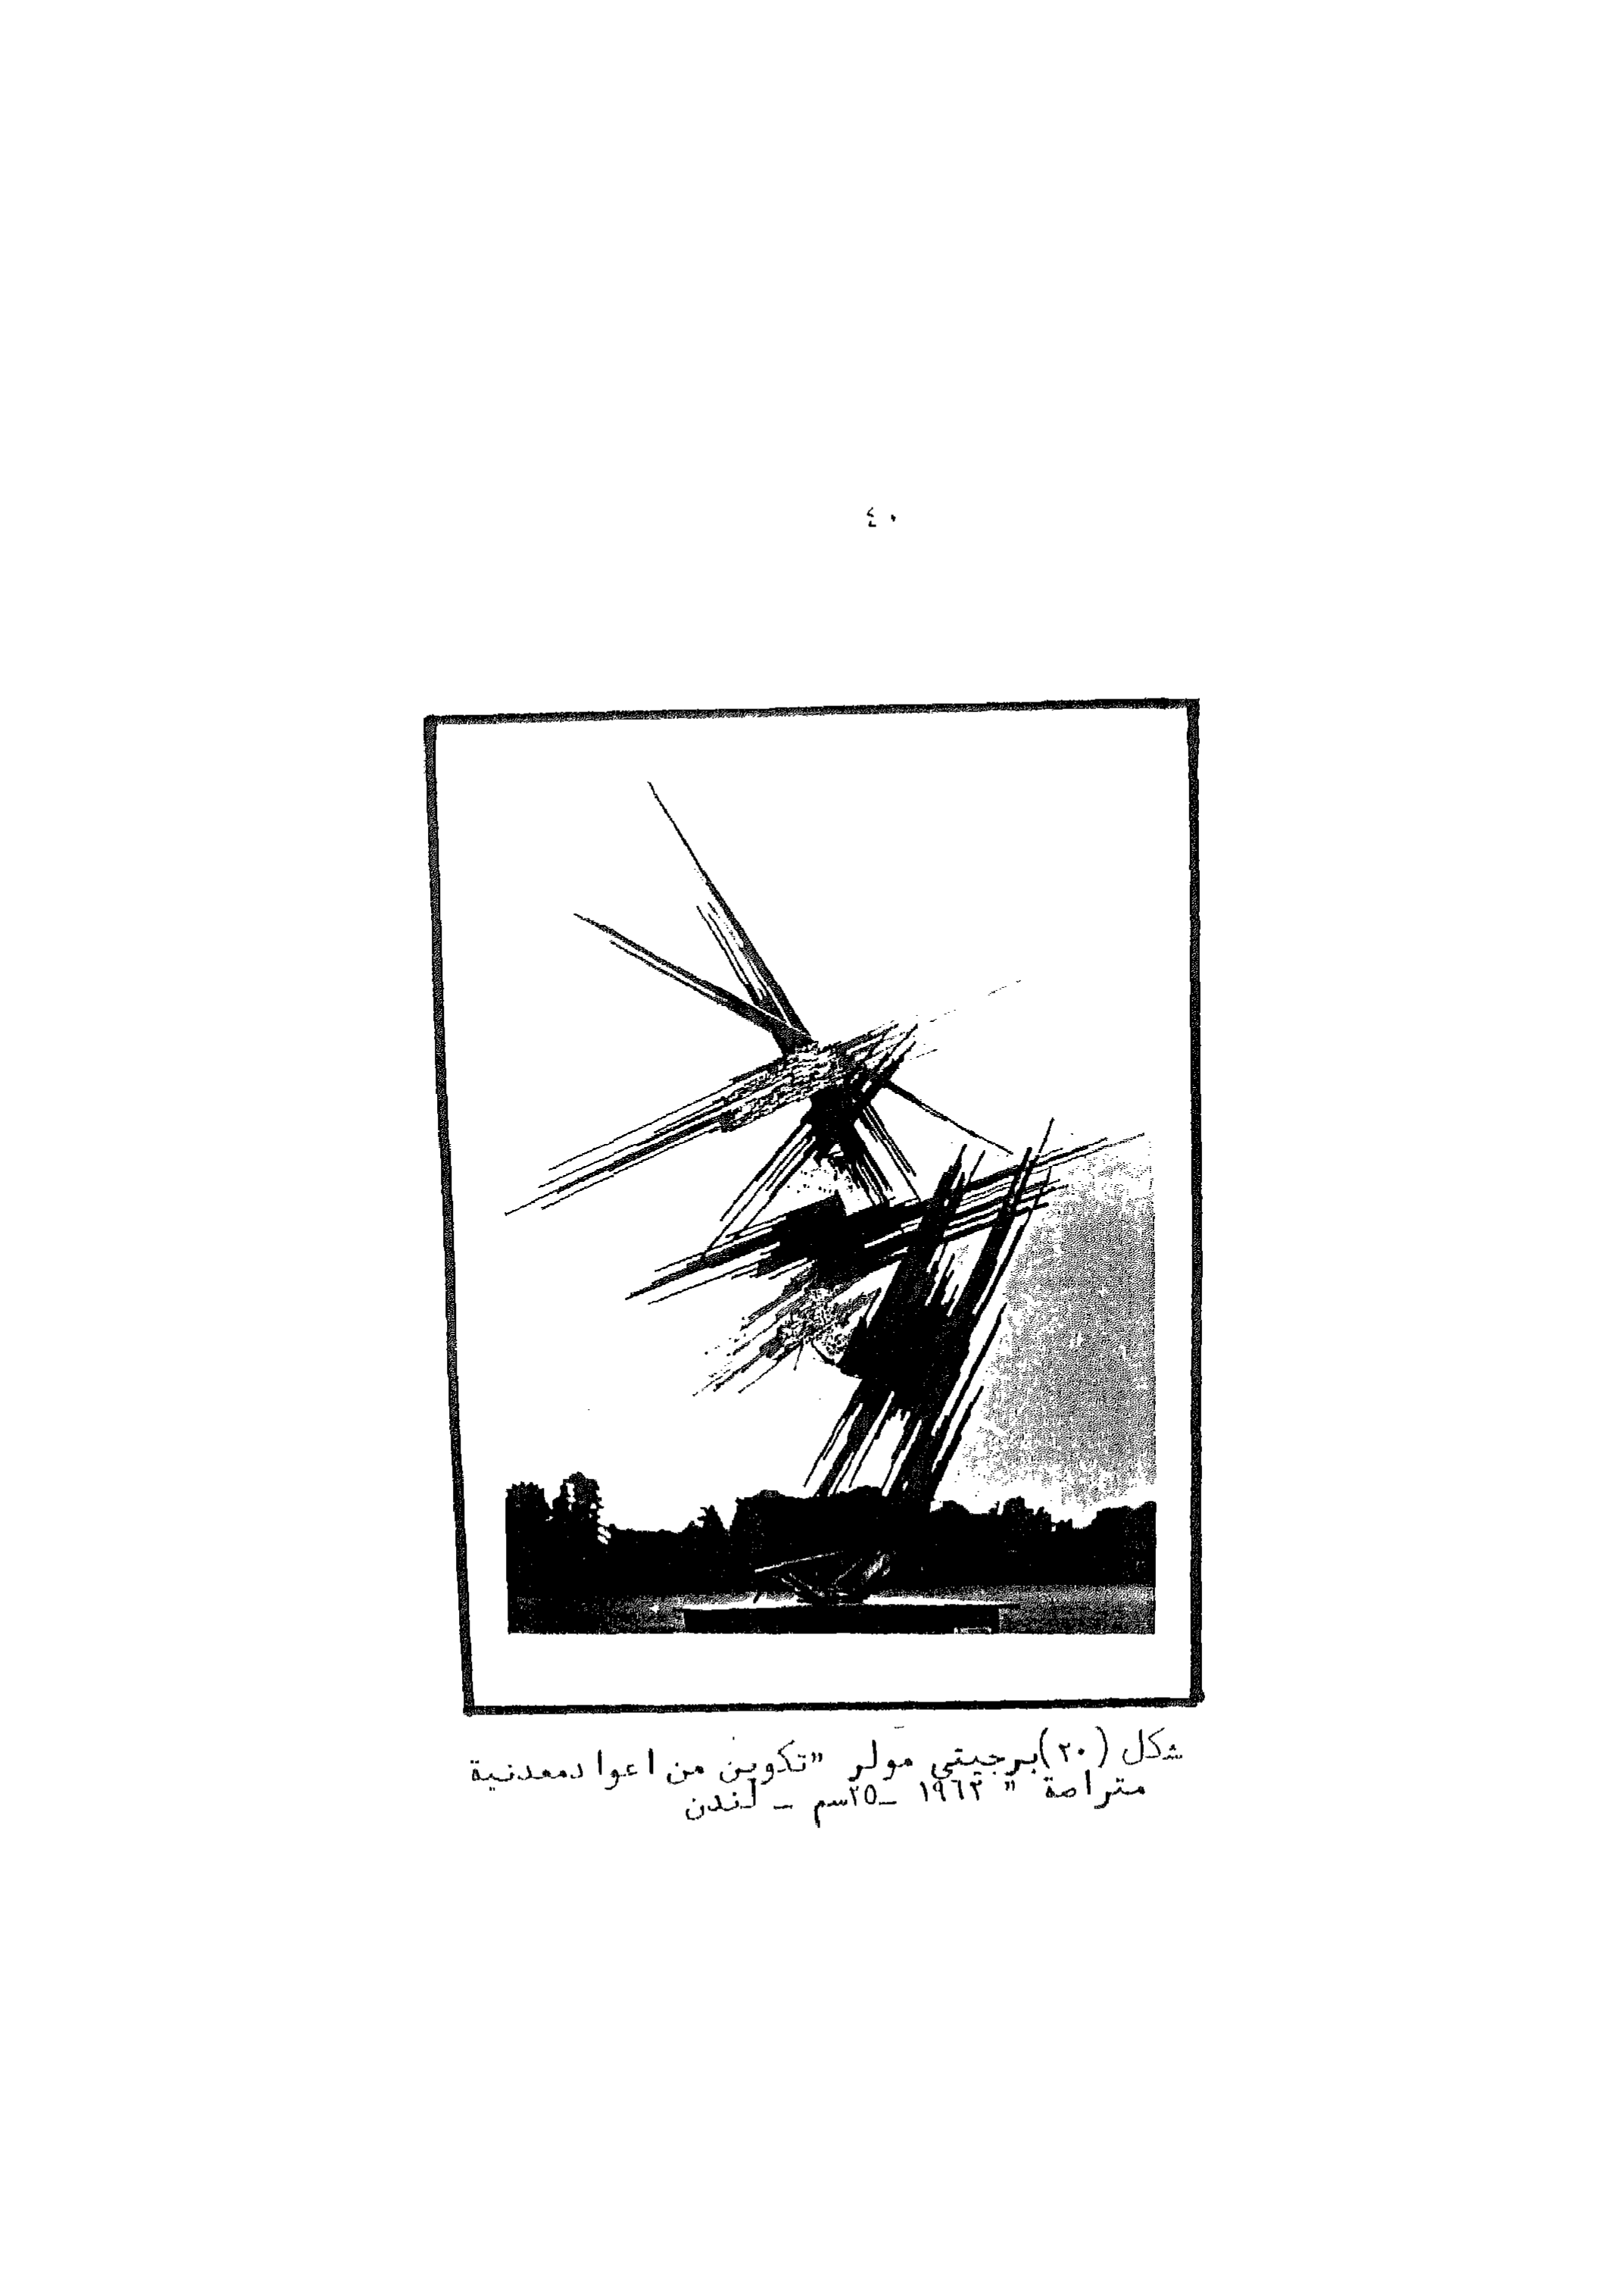 ٤٠
شكل (٢٠) برجيتي مولر "تكوين من اعواد معدنية
متراصة " ١٩٦٢ _٢٥سم _ لندن